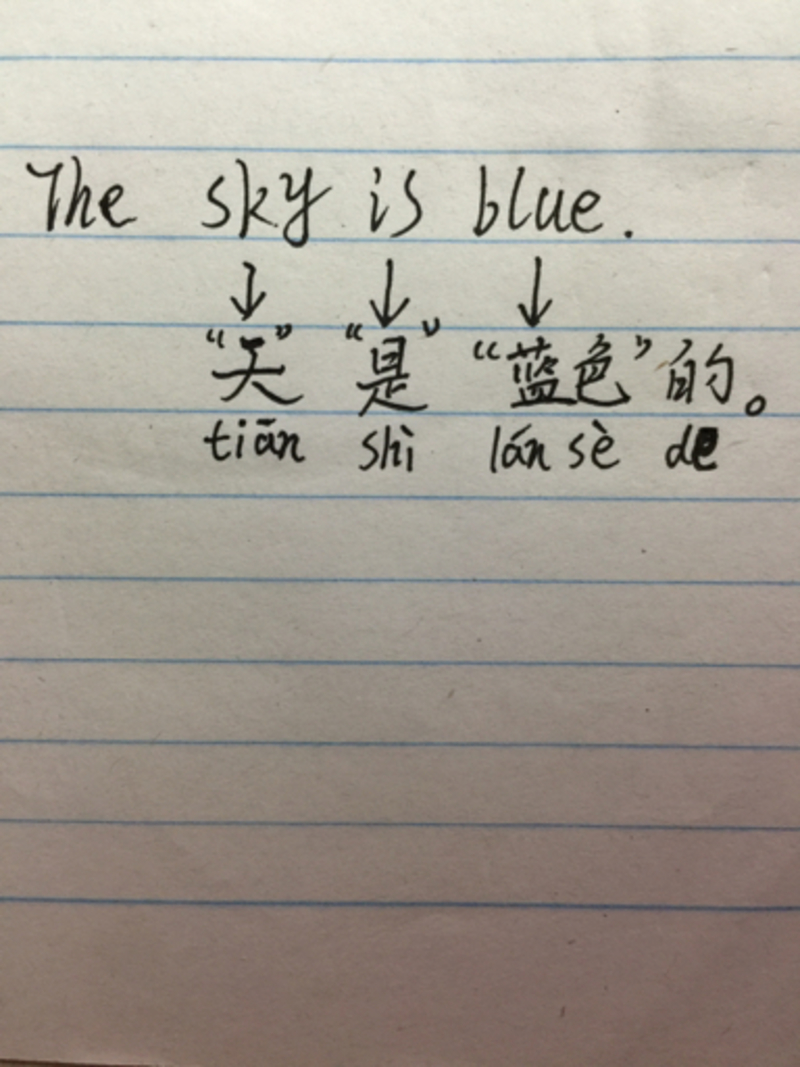 The sky is blue.
↓ ↓ ↓
“天” “是” “蓝色”的。
tiān shì lán sè de